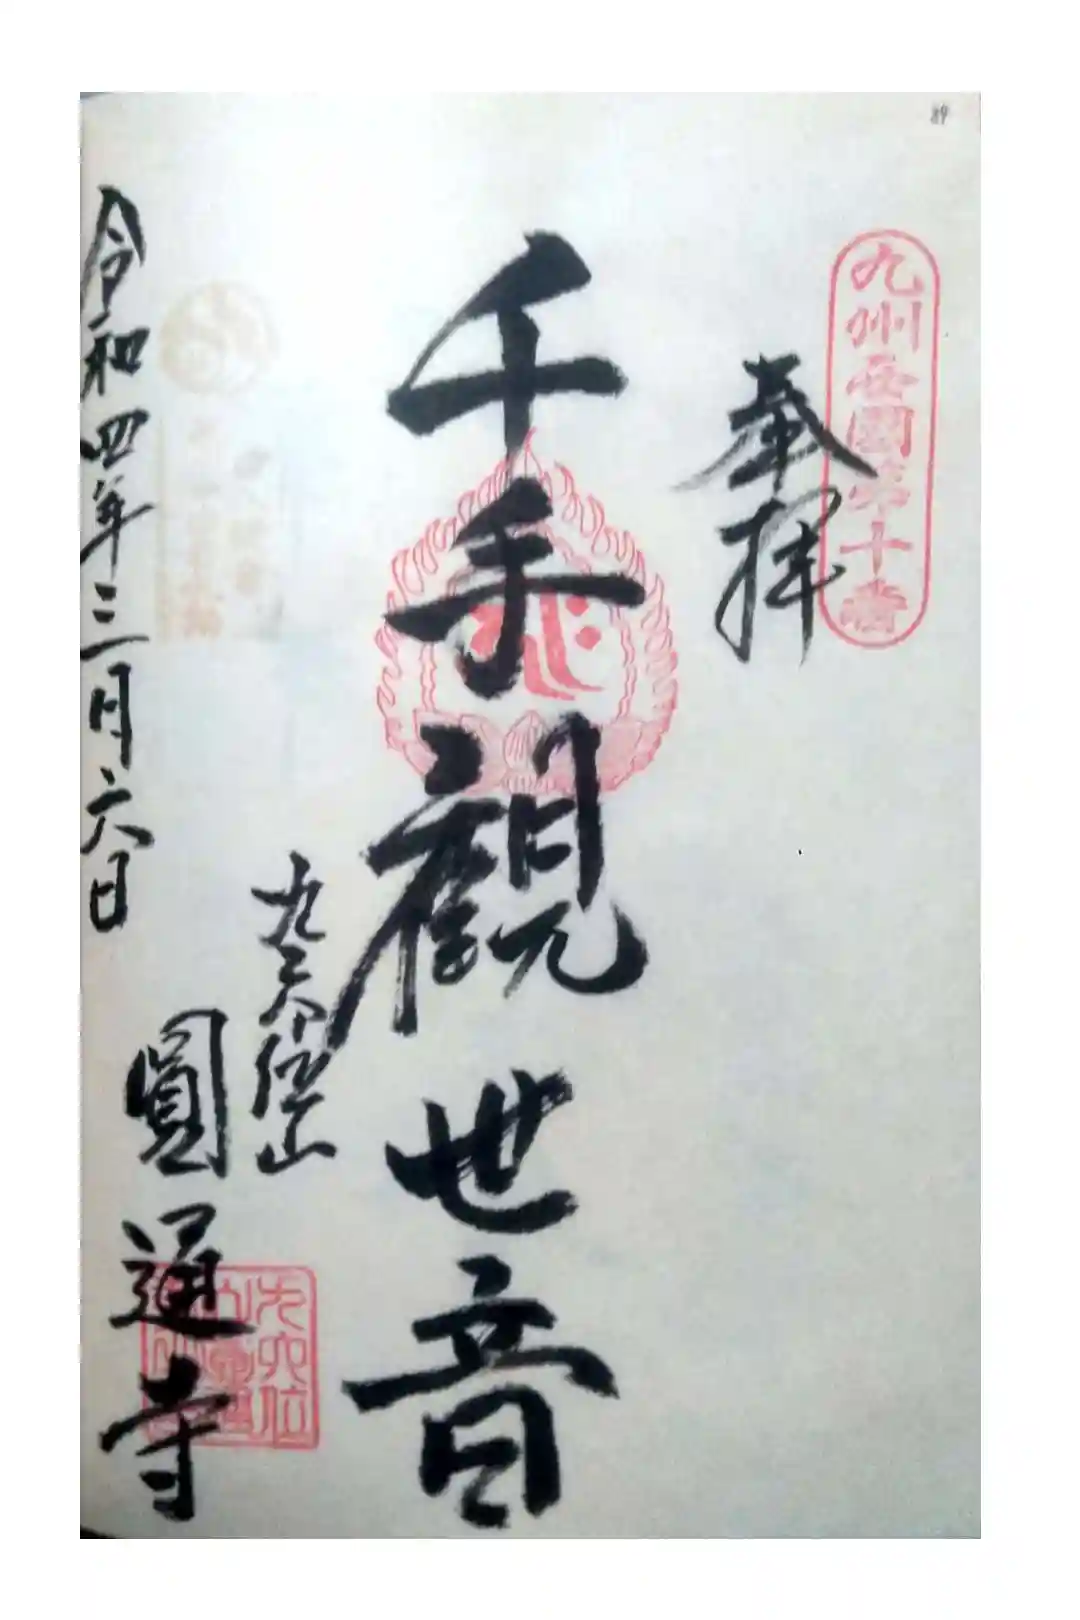 89
九州西國第十番
奉拝
千手觀世音
九六位山
圓通寺
令和四年三月六日